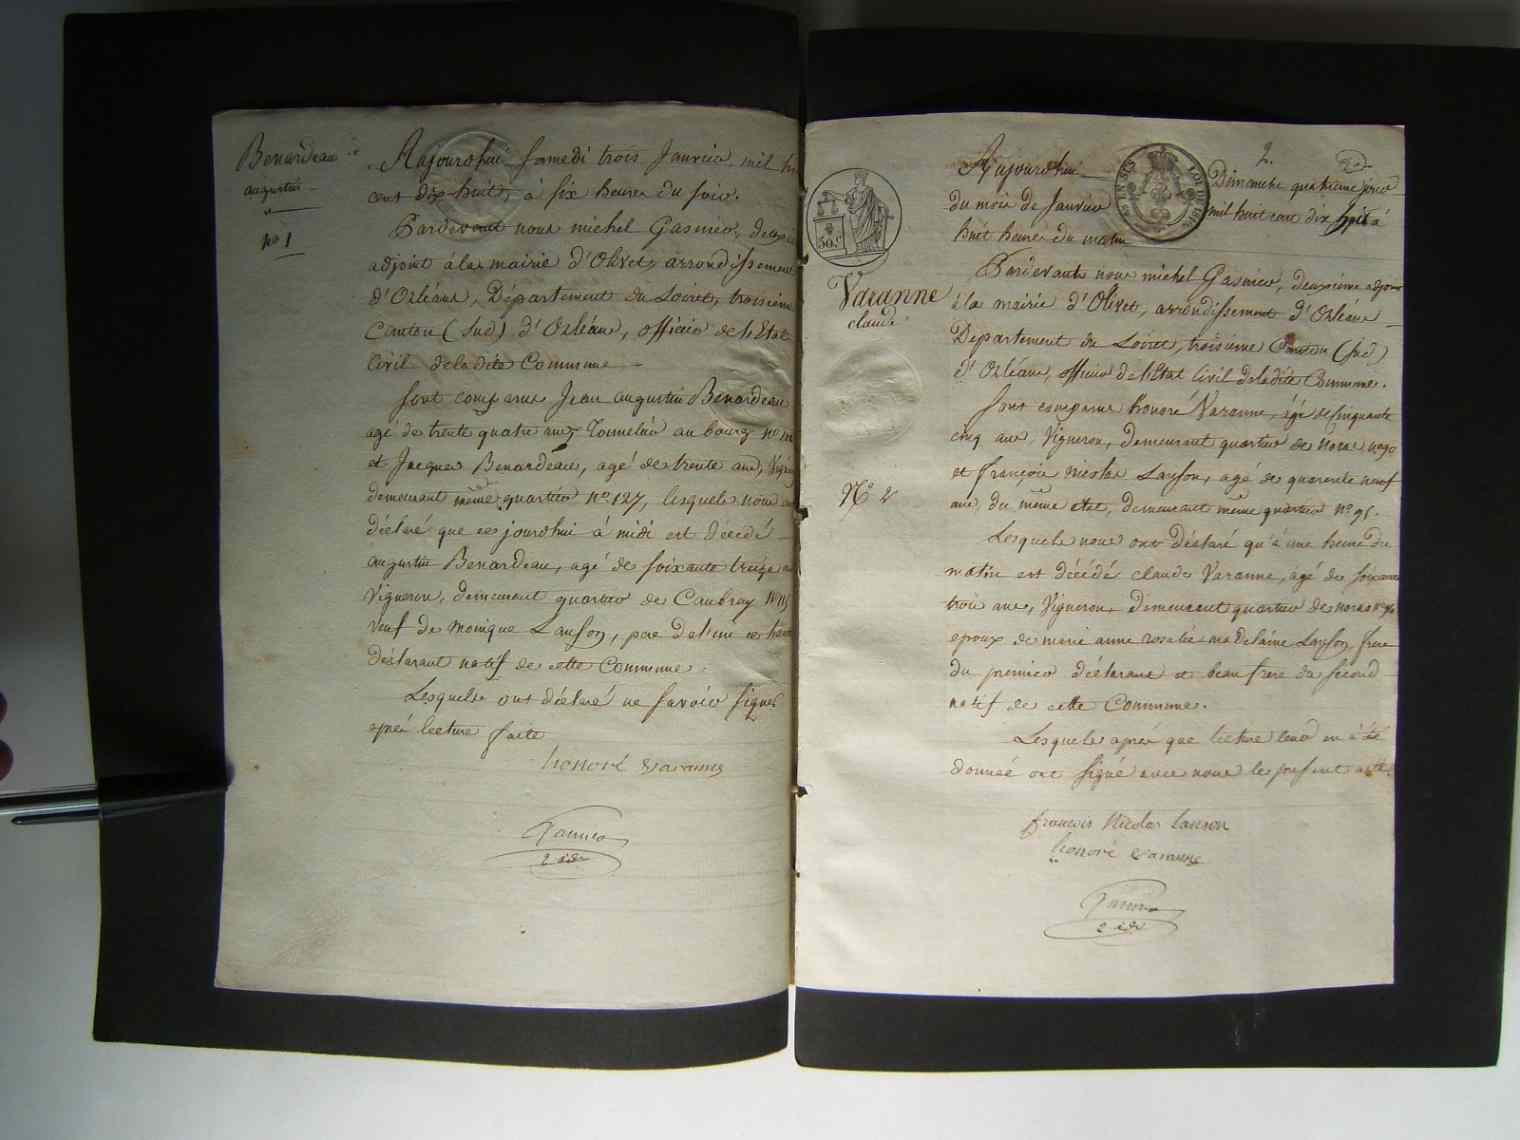 Benardeau
augustin
nº 1
Aujourdhui samedi trois Janvier mil
cent dix huit, à six heures du soir.
Pardevant nous michel Gasnier, deuxième
adjoint à la mairie d'Olivet, arrondissement
d'Orléans, Département du Loiret, troisième
Canton (Sud) d'Orléans, officier de l'Etat
Civil deladite Commune
Sont comparus Jean augustin Benardeau
agé de trente quatre ans, Tonnelier au bourg nº
et Jacques Benardeau, agé de trente ans, Vigneron
demeurant même quartier nº 127, lesquels nous ont
déclaré que cejourdhui à midi est décédé
augustin Benardeau, agé de soixante treize ans
Vigneron, demeurant quartier de Caubray nº 115
Veuf de monique Lanson, père de l'un des
déclarant natif de cette Commune.
Lesquels ont déclaré ne savoir signer
après lecture faite
honoré Varanne
Gasnier
2 adj
2.
50.c
Varanne
claude
Nº 2
Aujourdhui Dimanche quatrième jour
du mois de Janvier mil huit cent dix huit à
huit heures du matin
Pardevant nous michel Gasnier, deuxième adjoint
à la mairie d'Olivet, arrondissement d'Orléans
Département du Loiret, troisième Canton (Sud)
d'Orléans, officier de l'Etat Civil deladite Commune.
Sont comparus honoré Varanne, agé de Cinquante
cinq ans, Vigneron, demeurant quartier de nº 90
et françois nicolas Lanson, agé de quarante neuf
ans, du même état, demeurant même quartier nº 95.
Lesquels nous ont déclaré qu'à une heure du
matin est décédé claude Varanne, agé de soixante
trois ans, Vigneron, demeurant quartier de nº 90
epoux de marie anne rosalie madelaine Lanson, frere
du premier déclarant et beau frere du second
natif de cette Commune.
Lesquels après que lecture leur en a été
donnée ont signé avec nous le présent acte.
francois Nicolas Lanson
honoré Varanne
Gasnier
2 adj